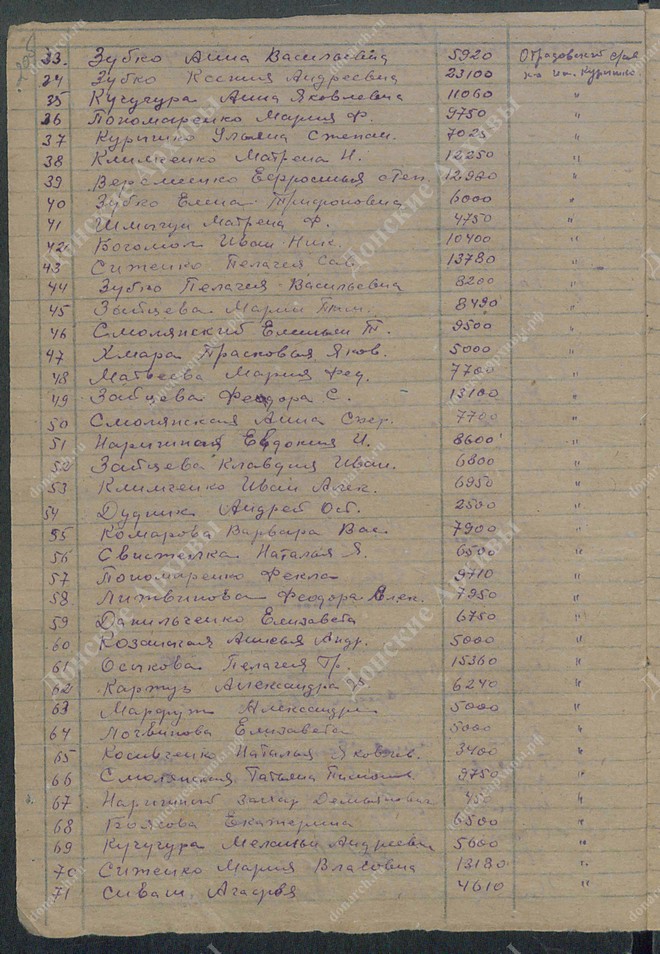 33. Зубко Анна Васильевна 5920 Отрадовский
34 Зубко Ксения Андреевна 23100
35 Кучугура Анна Яковлевна 11060 "
36 Пономаренко Мария Ф. 9750 "
37 Куричко Ульяна Степан. 7025 "
38 Клименко Матрена И. 12250 "
39 Веременко Ефросинья 12980 "
40 Зубко Елена Трифоновна 6000 "
41 Матрена Ф. 4750 "
42 Богомол Иван Ник. 10400 "
43 Сиженко Пелагея Сав. 13780 "
44 Зубко Пелагея Васильевна 8200 "
45 Зайцева Мария 8490 "
46 Смолянский Емельян Т. 9500 "
47 Хмара Прасковья Яков. 5000 "
48 Матвеева Мария Фед. 7700 "
49 Зайцева Феодора С. 13100 "
50 Смолянская Анна 7700 "
51 Наричная Евдокия И. 8600 "
52 Зайцева Клавдия Иван. 6800 "
53 Климченко Иван Алек. 6950 "
54 Дудник Андрей Ост. 2500 "
55 Комарова Варвара Вас 7900 "
56 Наталья Я. 6500 "
57 Пономаренко Фекла 9710 "
58 Литвинова Феодора Алек. 7950 "
59 Данильченко Елизавета 6750 "
60 Андр. 5000 "
61 Осыкова Пелагея Гр. 15360 "
62 Картуз Александра 6240 "
63 Александра 5000 "
64 Логвинова Елизавета 5000 "
65 Наталья Яковлев. 3400 "
66 Смолянская Татьяна 9750 "
67 Наричный Захар Демьянович "
68 Екатерина 6500 "
69 Кучугура Мелания Андреевна 5600 "
70 Сиженко Мария Власовна 13180 "
71 Сиваш Агафья 4610 "
Донские Архивы
donarch.ru